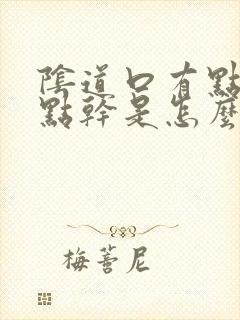 陰道口有點
點幹是怎麼
梅薈尼